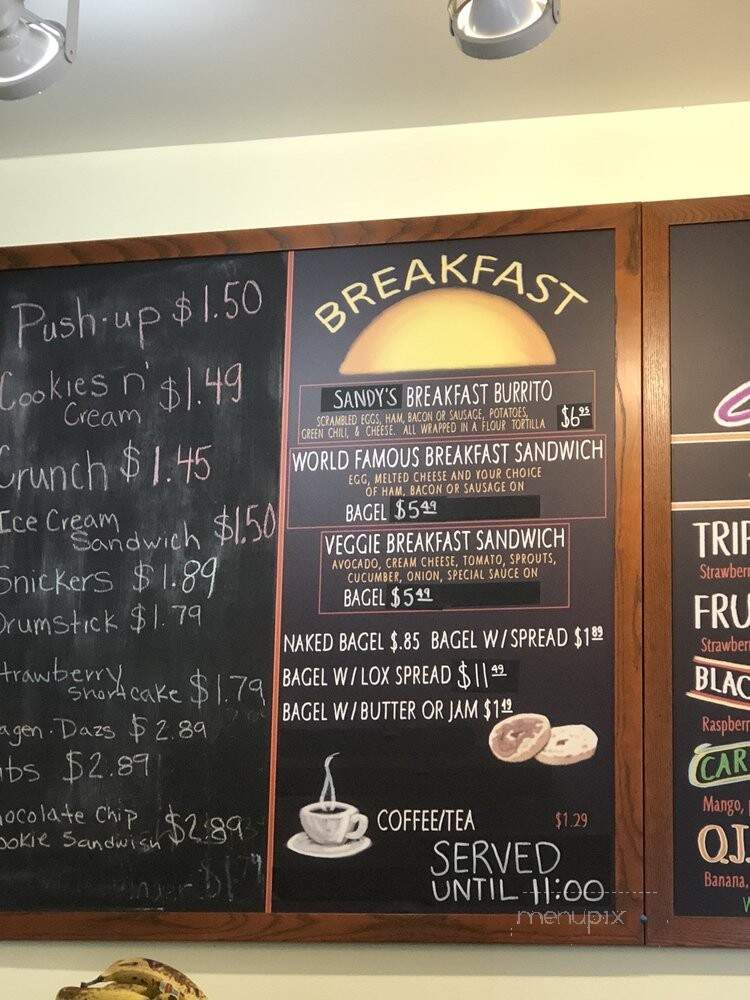 Push-up $1.50
Cookies n' $1.49
Cream
Crunch $1.45
Ice Cream
Sandwich $1.50
Snickers $1.89
Drumstick $1.79
trawberry
shortcake $1.79
agen-Dazs $2.89
bs $2.89
hocolate Chip
ookie Sandwish $2.89
BREAKFAST
SANDY'S BREAKFAST BURRITO
SCRAMBLED EGGS, HAM, BACON OR SAUSAGE, POTATOES,
GREEN CHILI, & CHEESE. ALL WRAPPED IN A FLOUR TORTILLA $6.95
WORLD FAMOUS BREAKFAST SANDWICH
EGG, MELTED CHEESE AND YOUR CHOICE
OF HAM, BACON OR SAUSAGE ON
BAGEL $5.49
VEGGIE BREAKFAST SANDWICH
AVOCADO, CREAM CHEESE, TOMATO, SPROUTS,
CUCUMBER, ONION, SPECIAL SAUCE ON
BAGEL $5.49
NAKED BAGEL $.85 BAGEL W/SPREAD $1.89
BAGEL W/LOX SPREAD $11.49
BAGEL W/BUTTER OR JAM $1.49
COFFEE/TEA $1.29
SERVED
UNTIL 11:00
TRIP
Strawberr
FRU
Strawberr
BLAC
Raspberr
CAR
Mango,
Q.J.
Banana,
menupix